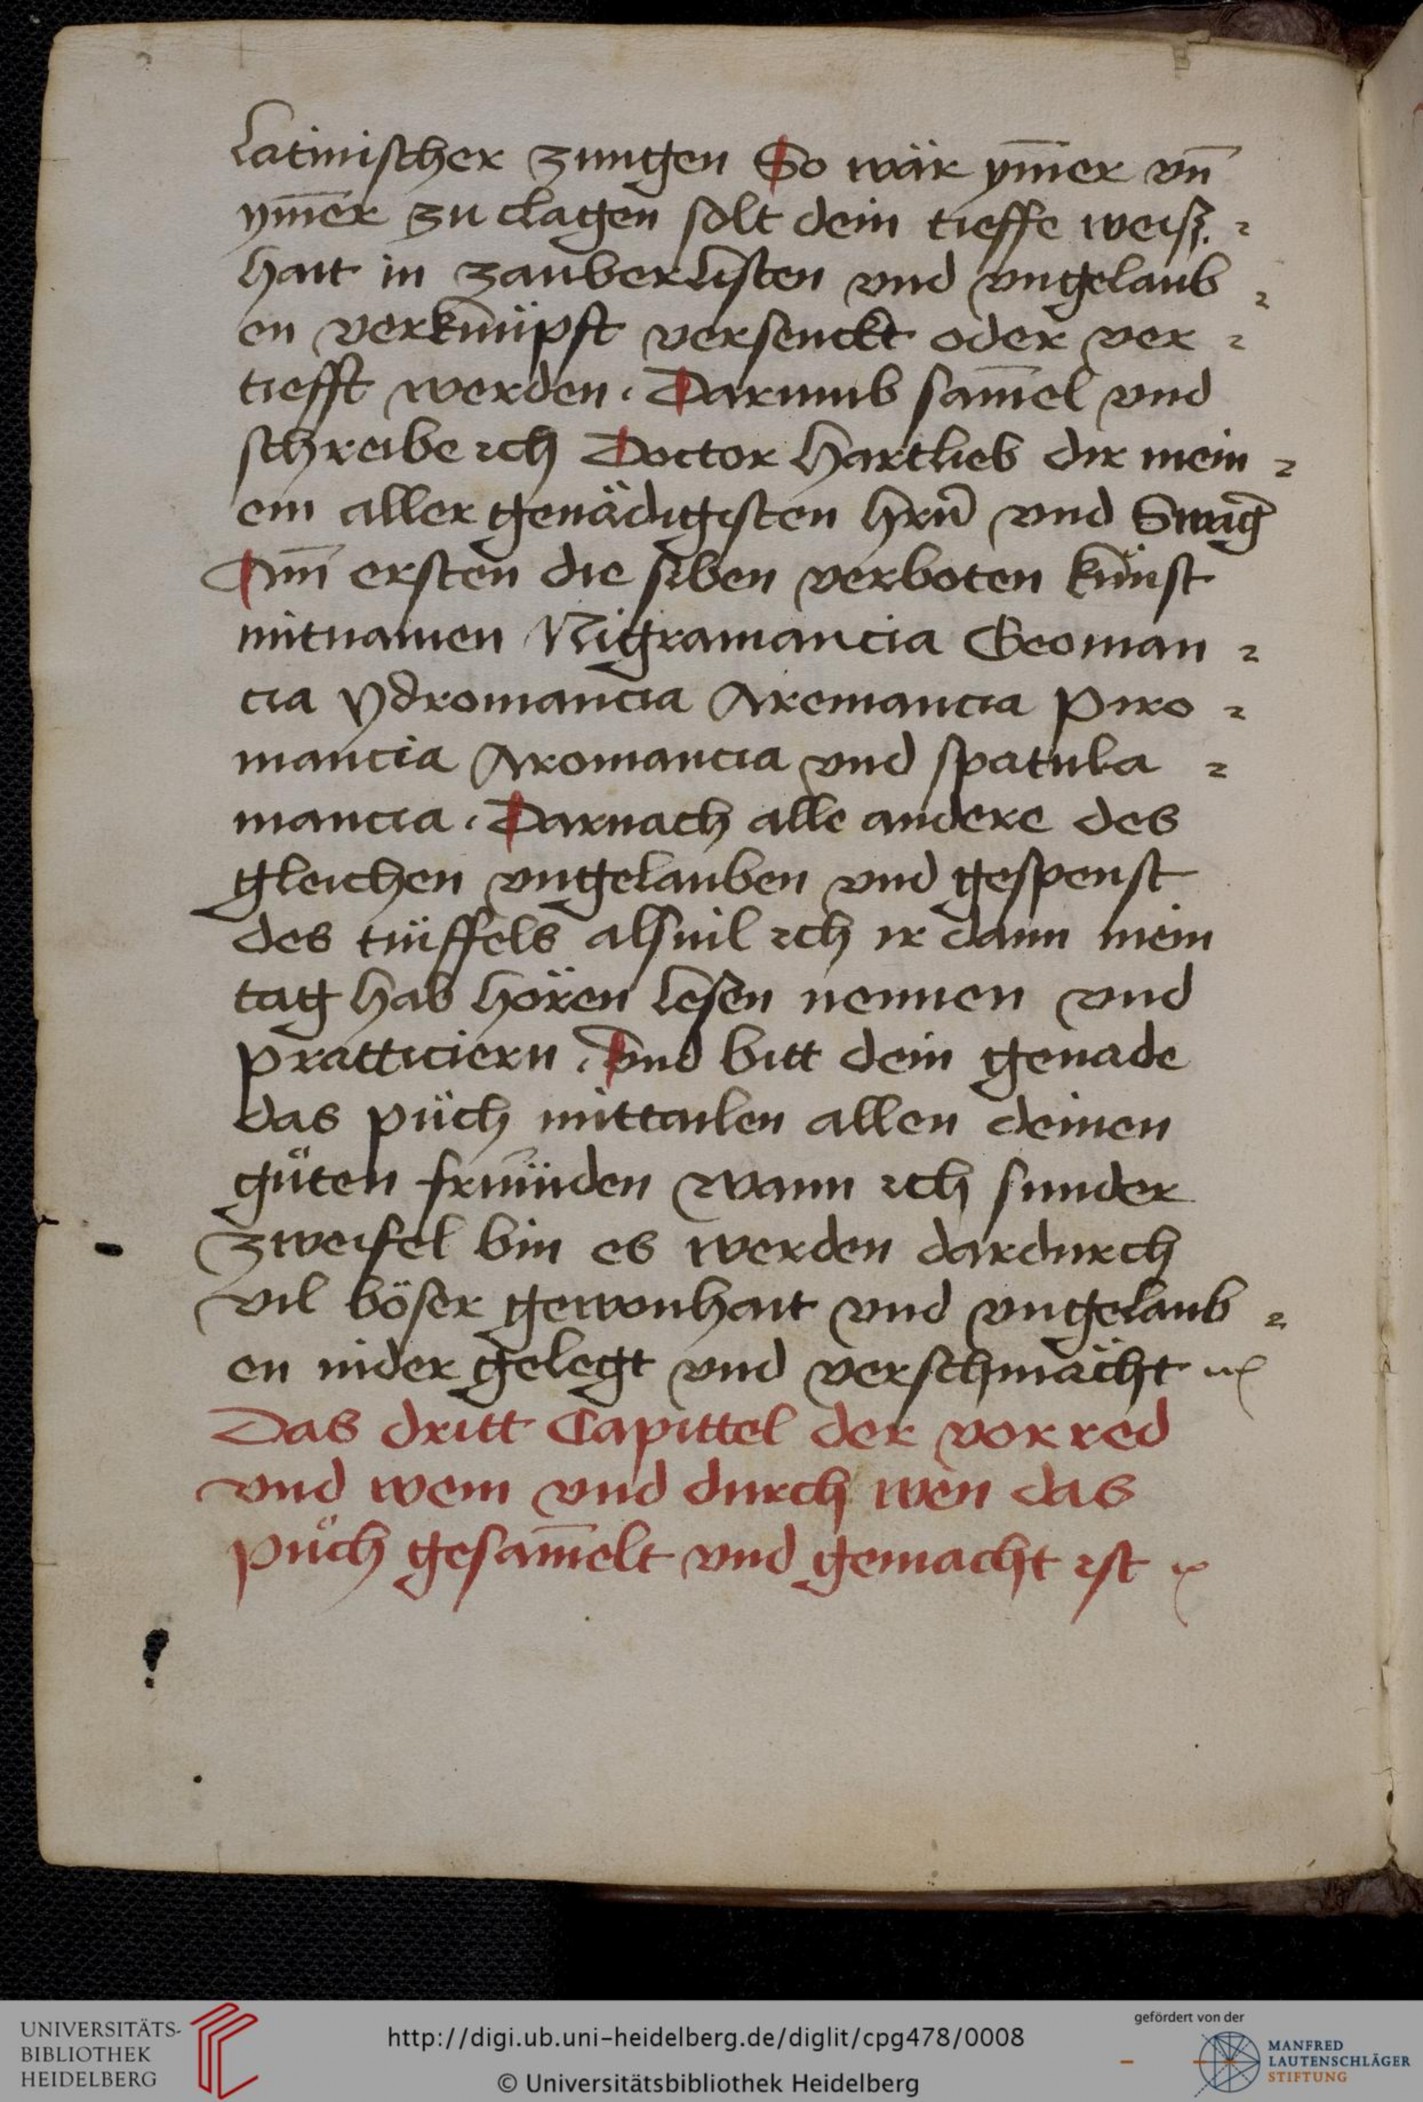 Latinischer zungen So wär ym̄er vn̄
ym̄er zu clagen solt dein tieffe weisz=
hait in zauberlisten vnd vngelaub=
en verknüpft versenckt oder ver=
tiefft werden. Darumb sam̄el vnd
schreibe ich Doctor Hartlieb dir mein=
em aller genädigisten hrn̄ vnd
Am̄ ersten die siben verboten künst
mitnamen Nigramancia Geoman=
cia ydromancia Aremancia Piro=
mancia Aromancia vnd spatula=
mancia. Darnach alle andere des
gleichen vngelauben vnd gespenst
des tüiffels alsuil ich ir dann mein
tag hab hören lesen nennen vnd
pratticiern. Vnd bitt dein genade
das püch mittailen allen deinen
güten frëunden wann ich sunder
zweifel bin es werden dardurch
vil böser gewonhait vnd vngelaub=
en nider gelegt vnd verschmächt
Das dritt Capittel der vorred
vnd wem vnd durch wen das
püch gesam̄elt vnd gemacht ist
UNIVERSITÄTS-
BIBLIOTHEK
HEIDELBERG
http://digi.ub.uni-heidelberg.de/diglit/cpg478/0008
© Universitätsbibliothek Heidelberg
gefördert von der
MANFRED
LAUTENSCHLÄGER
STIFTUNG